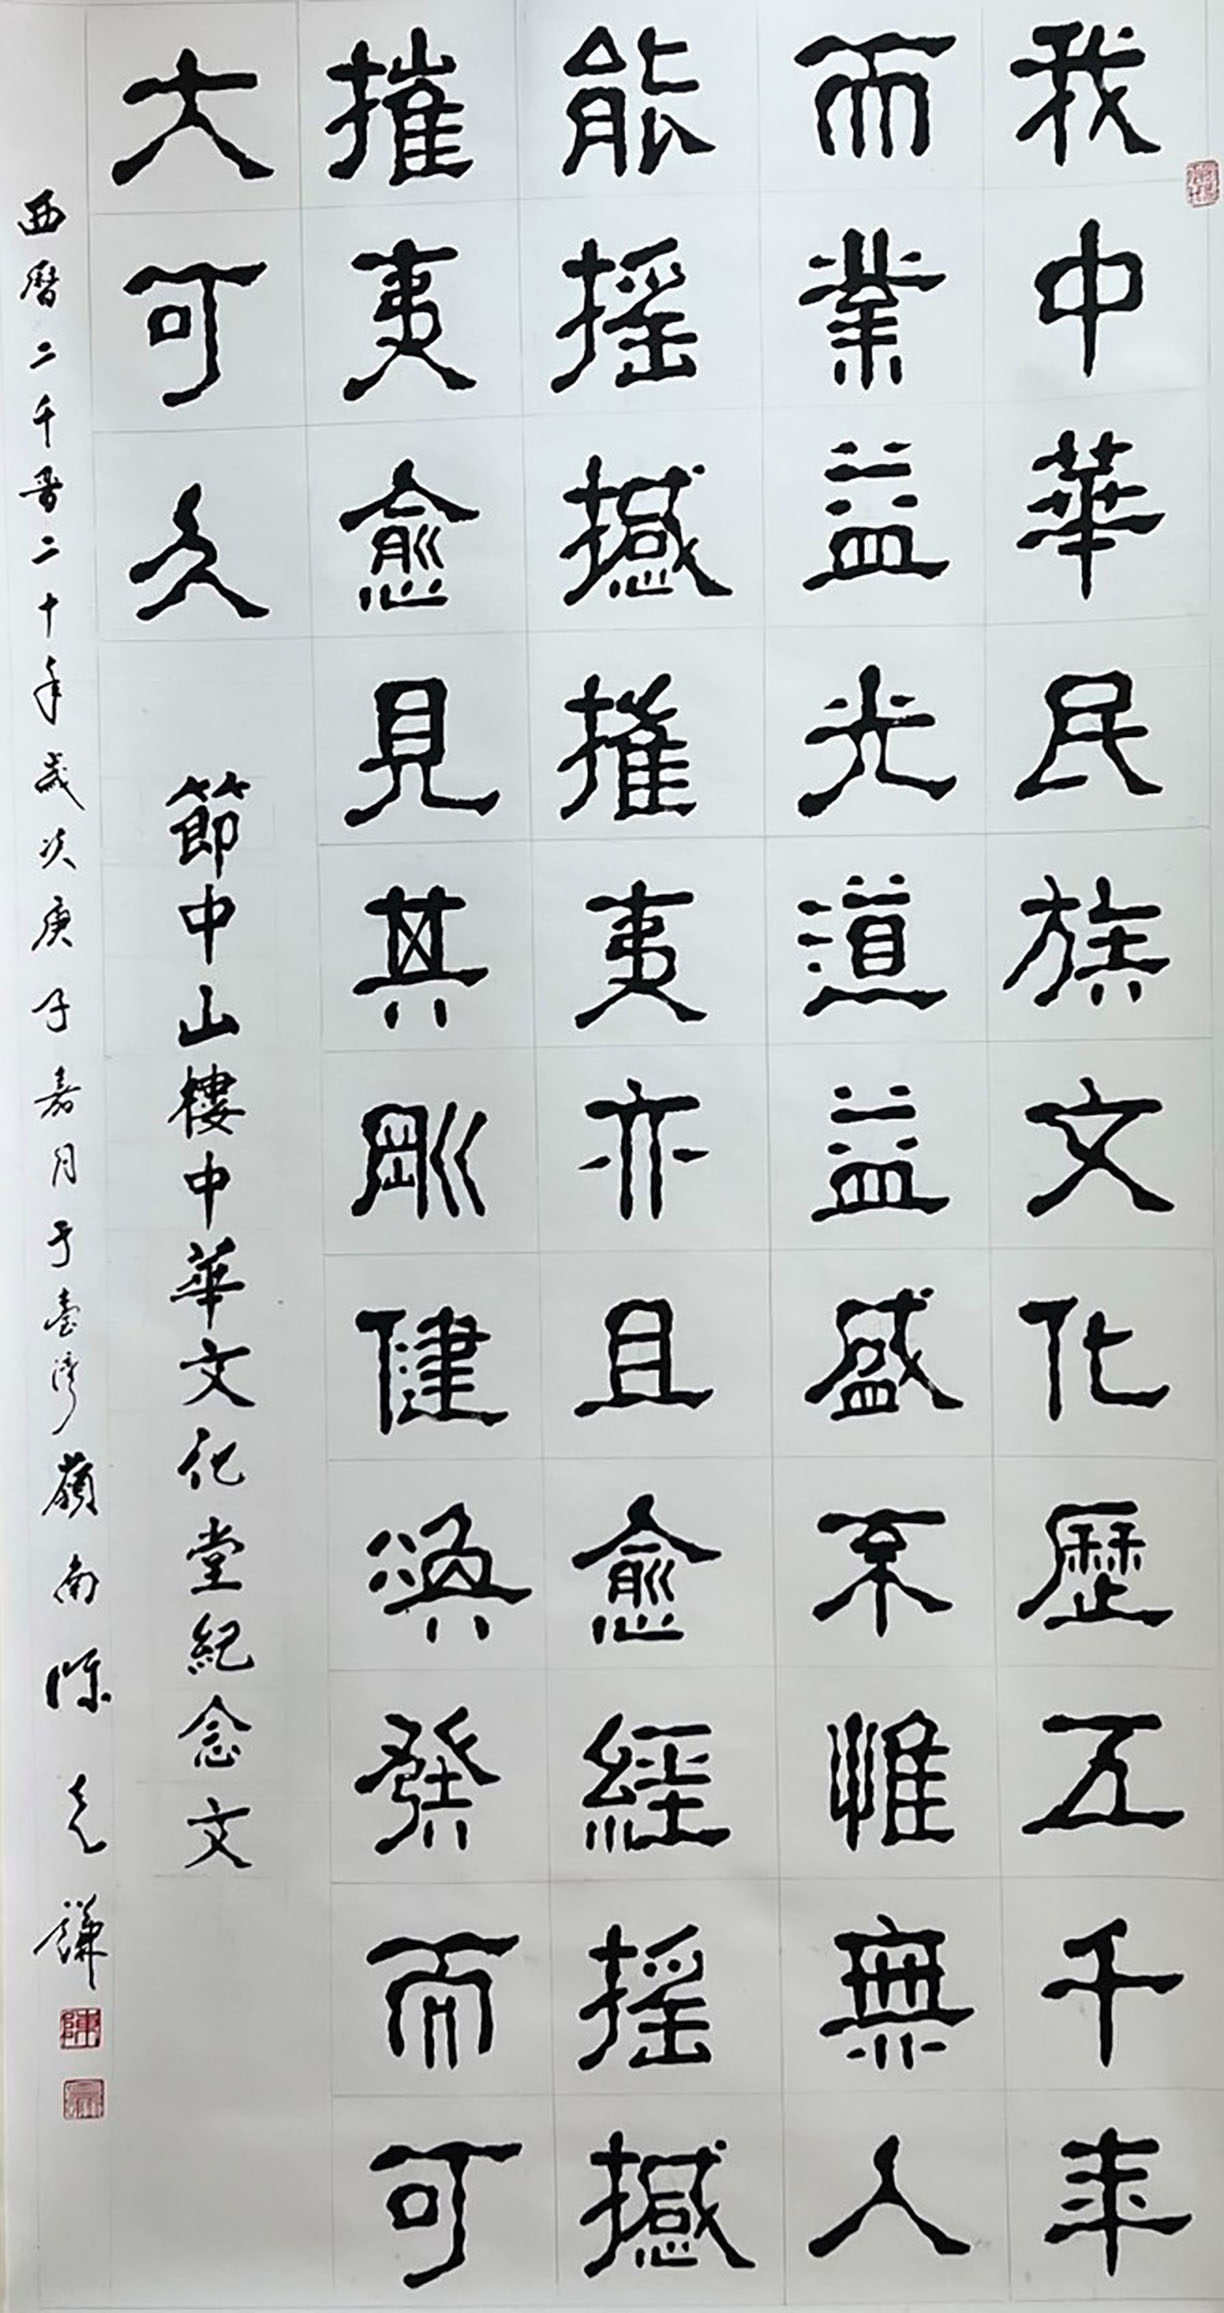 我中華民族文化歷五千年
而業益光道益盛不惟無人
能搖撼摧夷亦且愈經搖撼
摧夷愈見其剛健煥發而可
大可久
節中山樓中華文化堂紀念文
西曆二千晉二十年歲次庚子嘉月于臺灣嶺南陳謙
陳